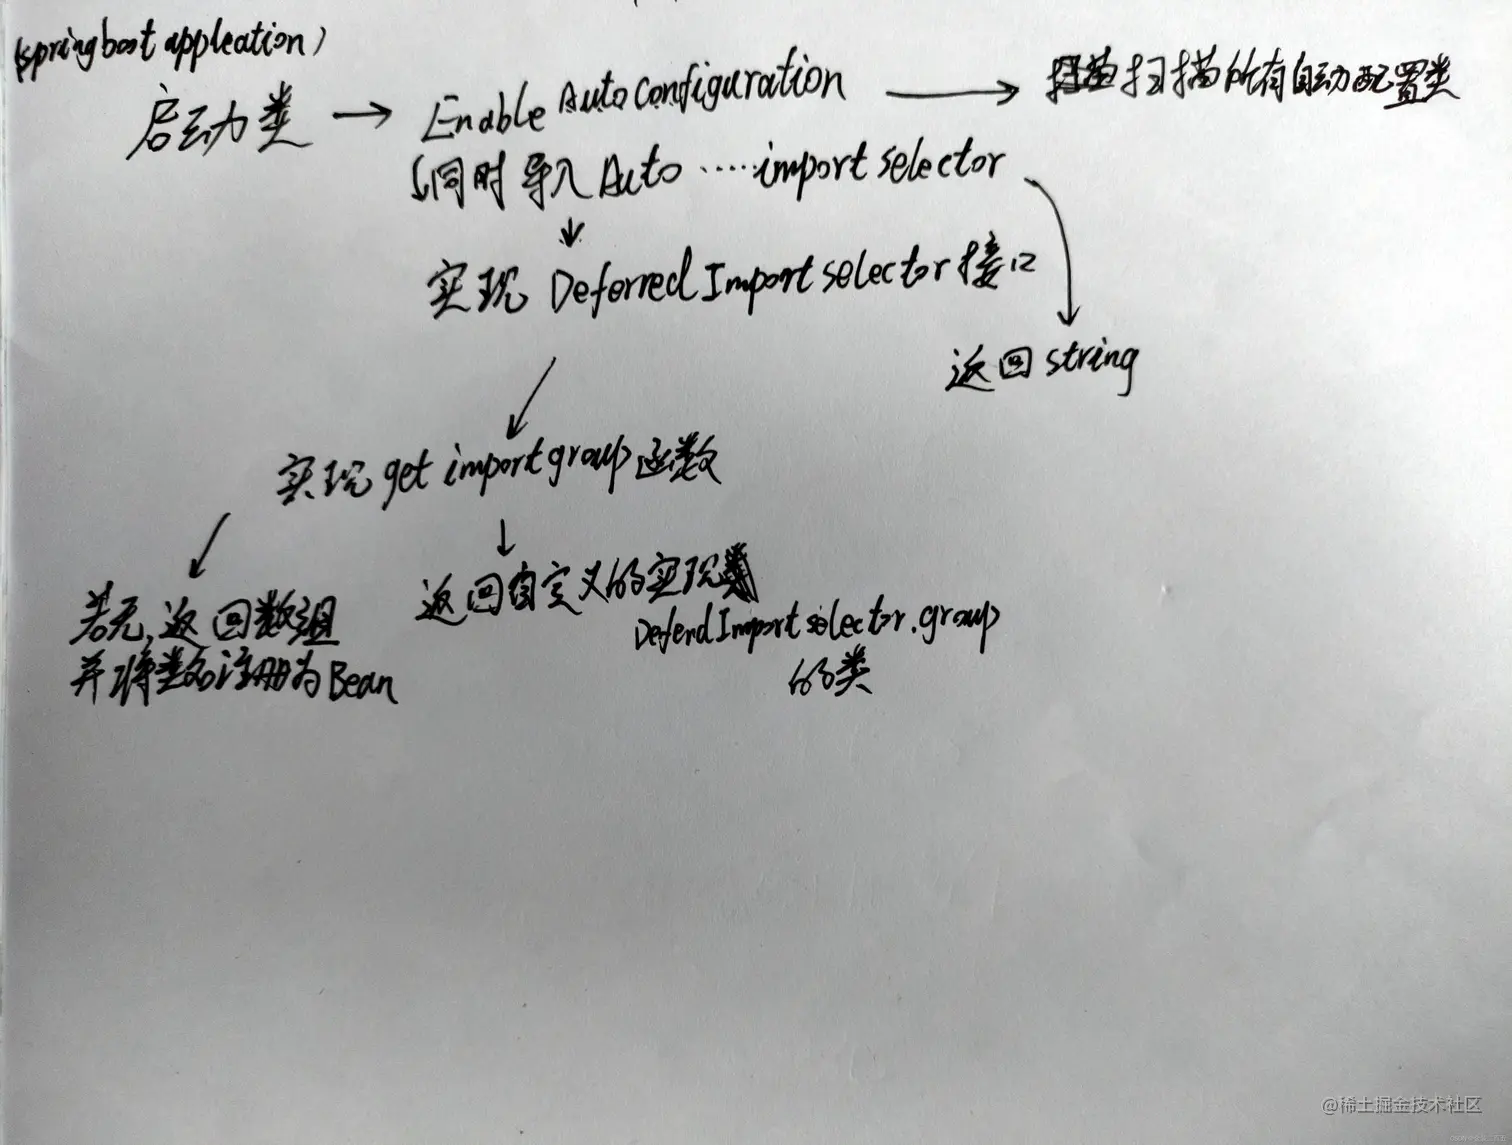 (springboot appleation)
启动类 → Enable AutoConfiguration → 扫描所有自动配置类
同时导入Auto ······import selector
实现 DeferredImport selector接口
返回string
实现 get importgroup函数
若无,返回数组
并将类名注册为Bean
返回自定义的实现
DeferedImport selector.group
的类
@稀土掘金技术社区